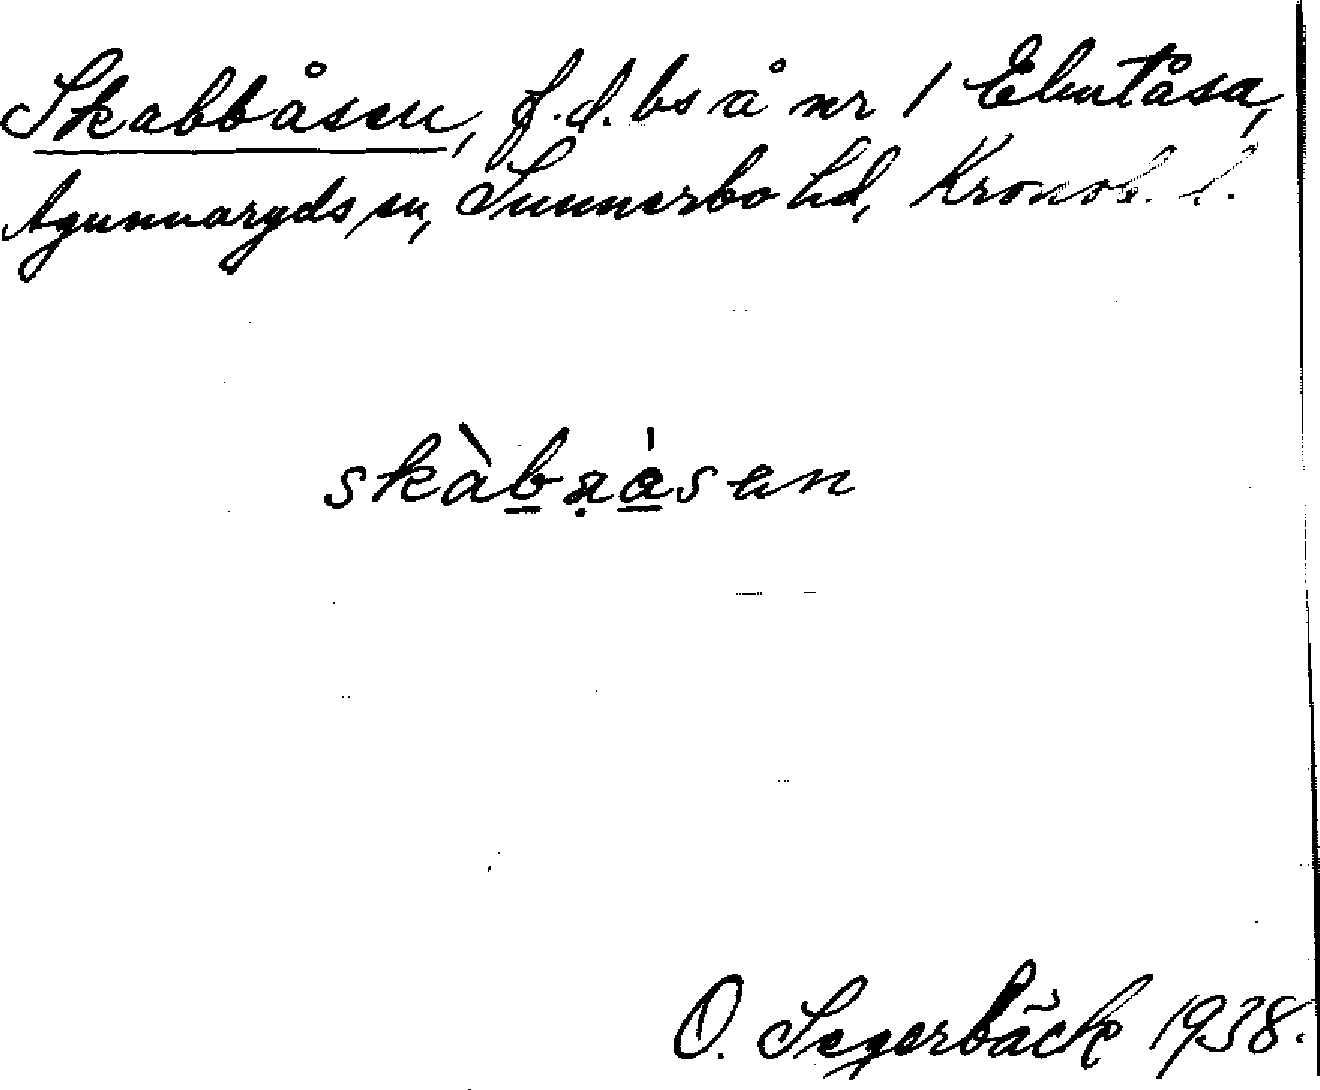 Skabbåsen, f.d. bs å nr 1 Elmtåsa,
Agunnaryds sn, Sunnerbo hd, Kronob. l.
skàbɷ̣åsen
O. Segerbäck 1938.